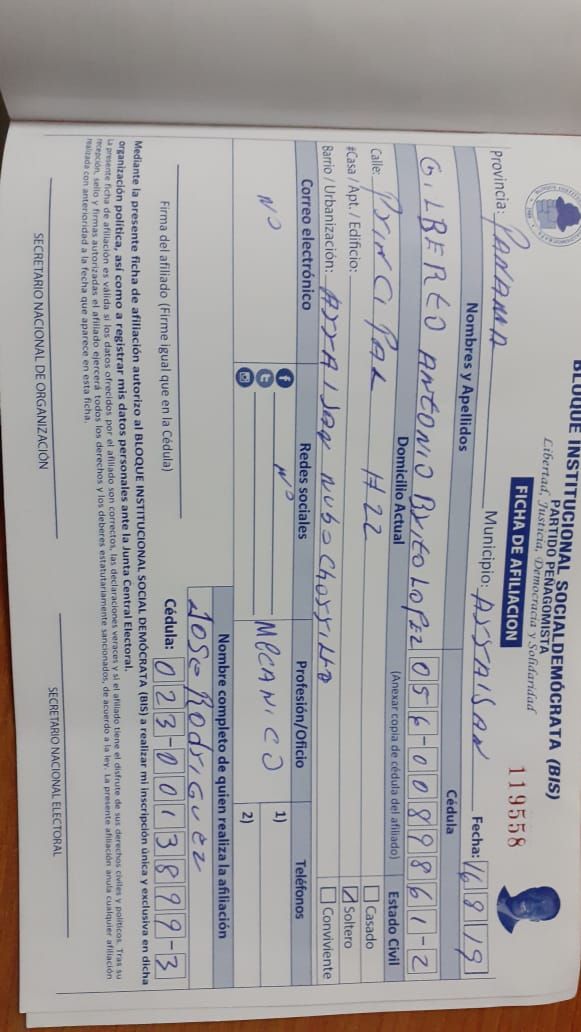 BLOQUE INSTITUCIONAL SOCIALDEMÓCRATA (BIS)
PARTIDO PEÑAGOMISTA
Libertad, Justicia, Democracia y Solidaridad
FICHA DE AFILIACION
119558
Provincia: PANAMA Municipio: Fecha: 16 8 19
Nombres y Apellidos Cédula
GILBERTO ANTONIO Brito LOPEZ 056-0089861-2
Domicilio Actual (Anexar copia de cédula del afiliado) Estado Civil
Calle: PrinciPAL # 22 Casado
#Casa / Apt. / Edificio: Soltero
Barrio / Urbanización: Conviviente
Correo electrónico Redes sociales Profesión/Oficio Teléfonos
N° N° MECANICO 1)
2)
Nombre completo de quien realiza la afiliación
Jose Rodriguez
Firma del afiliado (Firme igual que en la Cédula) Cédula: 023-0013899-3
Mediante la presente ficha de afiliación autorizo al BLOQUE INSTITUCIONAL SOCIAL DEMÓCRATA (BIS) a realizar mi inscripción única y exclusiva en dicha
organización política, así como a registrar mis datos personales ante la Junta Central Electoral.
La presente ficha de afiliación es válida si los datos ofrecidos por el afiliado son correctos, las declaraciones veraces y si el afiliado tiene el disfrute de sus derechos civiles y políticos. Tras su
recepción, sello y firmas autorizadas el afiliado ejercerá todos los derechos y los deberes estatutariamente sancionados, de acuerdo a la ley. La presente afiliación anula cualquier afiliación
realizada con anterioridad a la fecha que aparece en esta ficha.
SECRETARIO NACIONAL DE ORGANIZACIÓN SECRETARIO NACIONAL ELECTORAL